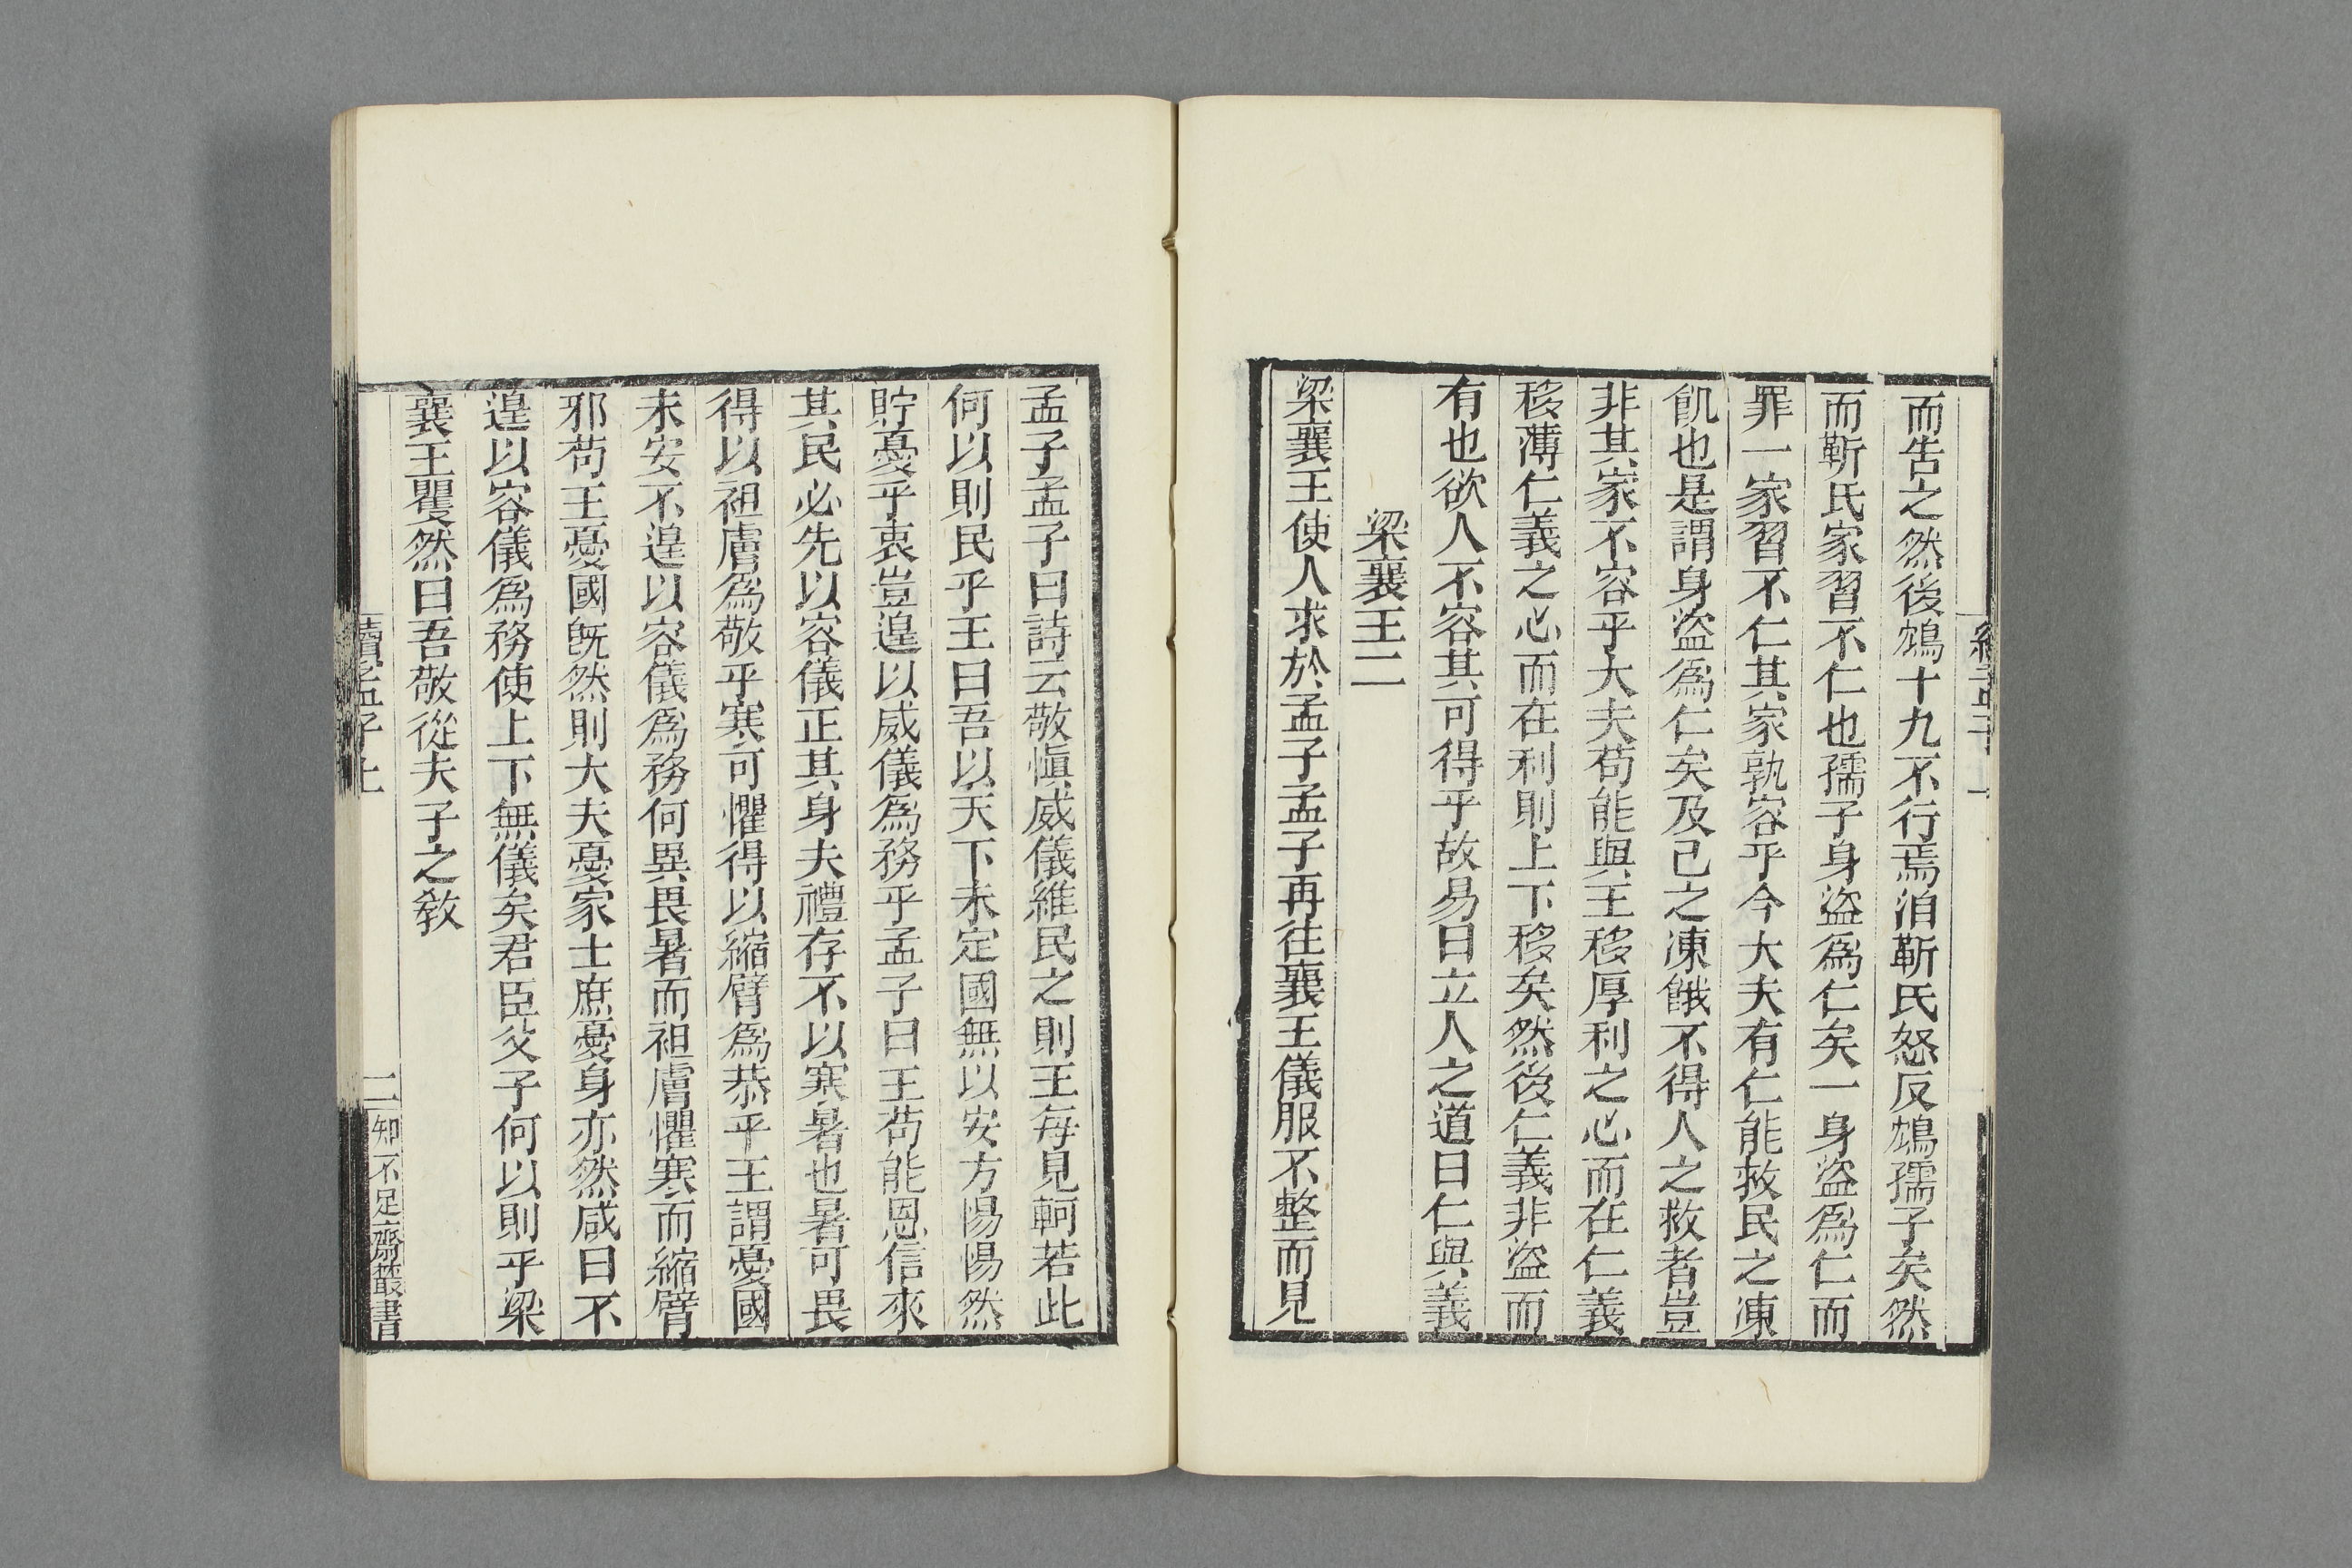 而告之然後鴆十九不行焉洎靳氏怒反鴆孺子矣然
而靳氏家習不仁也孺子身盜爲仁矣一身盜爲仁而
罪一家習不仁其家孰容乎今大夫有仁能救民之凍
飢也是謂身盜爲仁矣及己之凍餓不得人之救者豈
非其家不容乎大夫苟能與王移厚利之心而在仁義
移薄仁義之心而在利則上下移矣然後仁義非盜而
有也欲人不容其可得乎故易曰立人之道曰仁與義
梁襄王二
梁襄王使人求於孟子孟子再往襄王儀服不整而見
孟子孟子曰詩云敬愼威儀維民之則王每見軻若此
何以則民乎王曰吾以天下未定國無以安方惕惕然
貯憂乎衷豈遑以威儀爲務乎孟子曰王苟能恩信來
其民必先以容儀正其身夫禮存不以寒暑也暑可畏
得以袒膚爲敬乎寒可懼得以縮臂爲恭乎王謂憂國
未安不遑以容儀爲務何異畏暑而袒膚懼寒而縮臂
邪苟王憂國旣然則大夫憂家士庶憂身亦然咸曰不
遑以容儀爲務使上下無儀矣君臣父子何以則乎梁
襄王瞿然曰吾敬從夫子之敎
續孟子上
二
知不足齋叢書